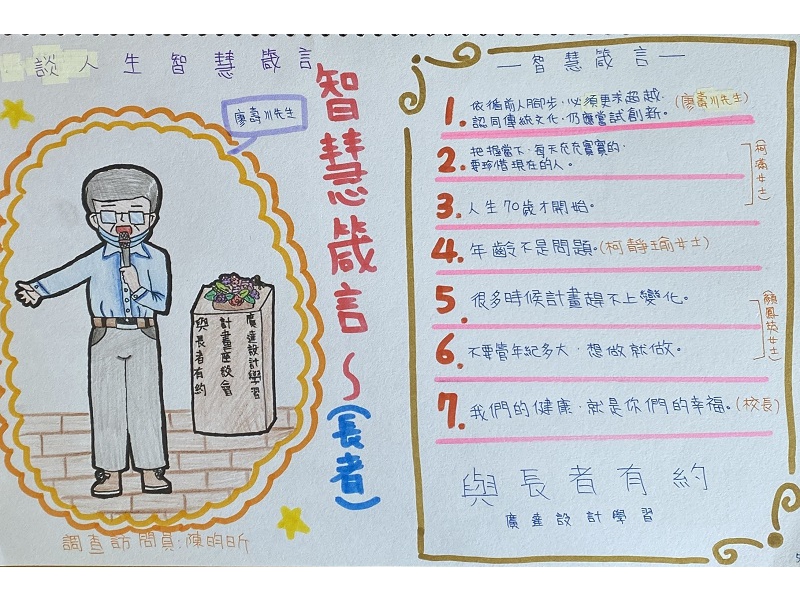 談人生智慧箴言
廖壽川先生
智慧箴言~(長者)
廣達設計學習
計畫座談會
與長者有約
調查訪問員:陳昀昕
—智慧箴言—
1.依循前人腳步,必須更求超越,(廖壽川先生)
認同傳統文化,仍應嘗試創新。
2.把握當下,每天充充實實的,
要珍惜現在的人。
(柯滿女士)
3.人生70歲才開始。
4.年齡不是問題。(柯靜瑜女士)
5.很多時候計畫趕不上變化。
6.不要管年紀多大,想做就做。
7.我們的健康,就是你們的幸福。(校長)
與長者有約
廣達設計學習